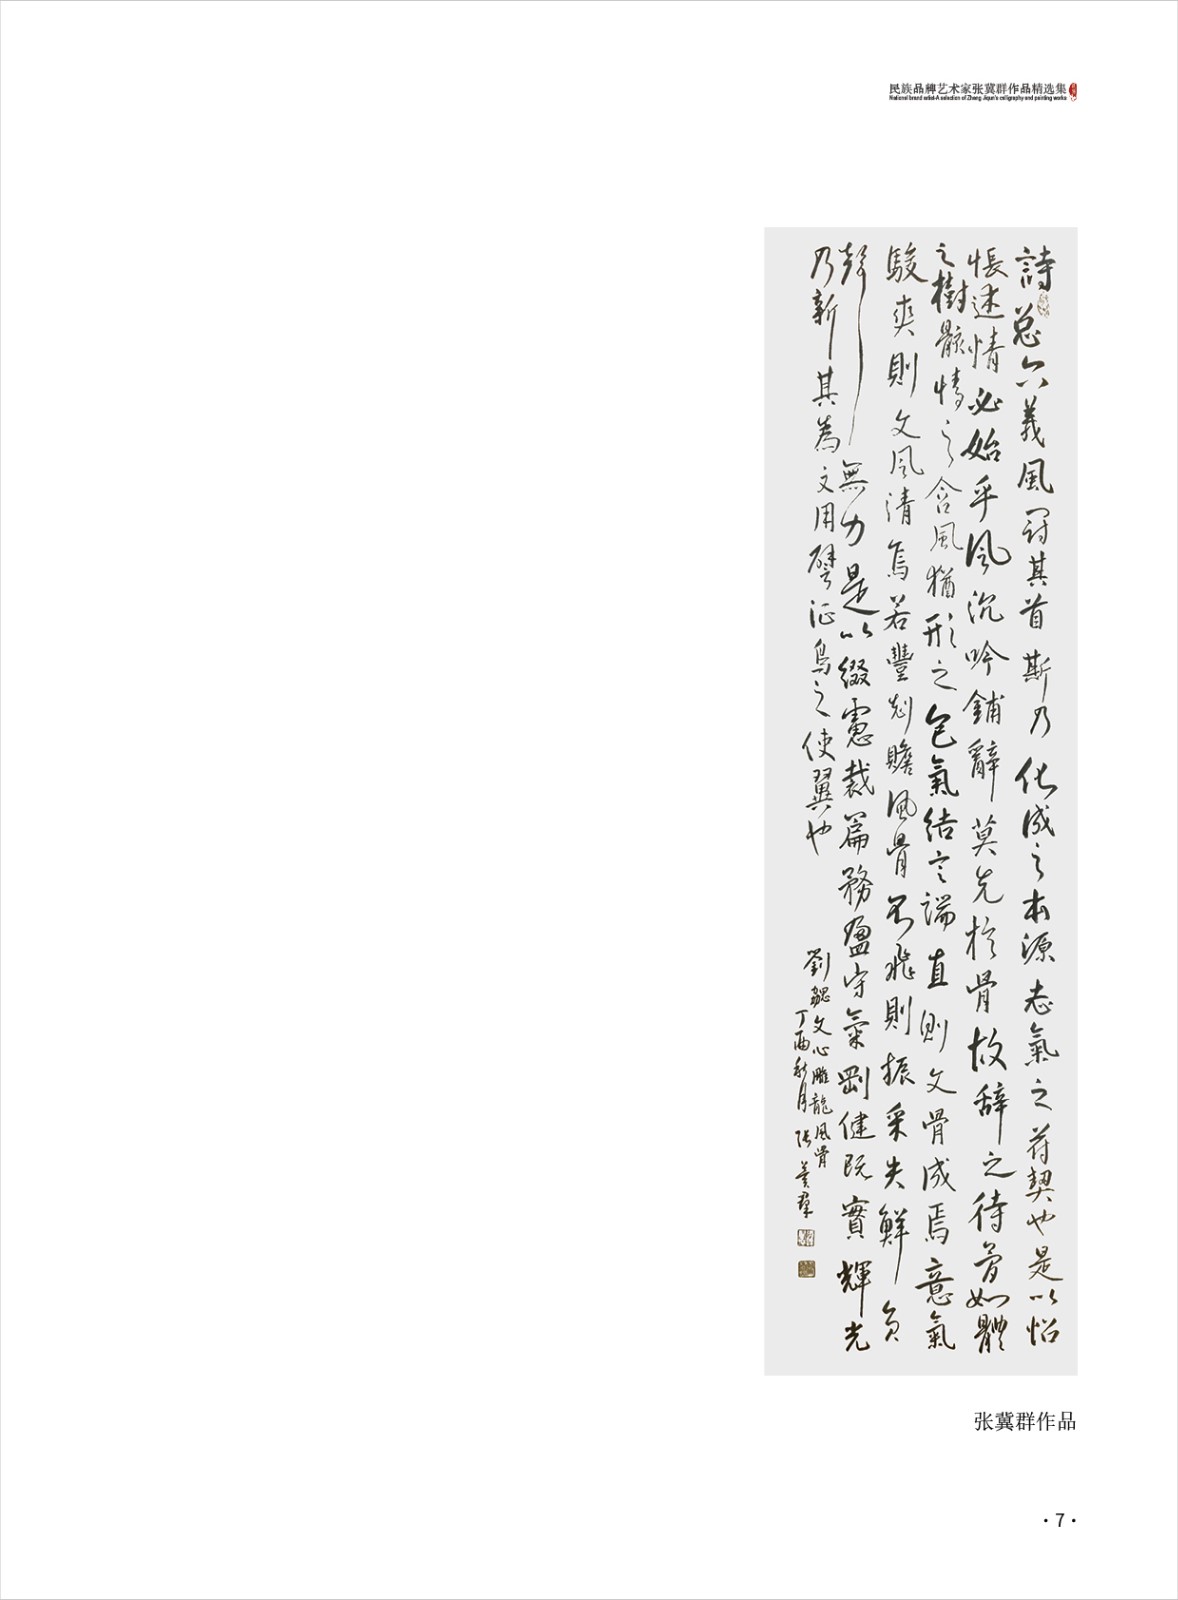 民族品牌艺术家张冀群作品精选集
National brand artist-A selection of Zhang Jiqun's calligraphy and painting works
詩总六義風冠其首斯乃化成之本源志氣之符契也是以怊
悵述情必始乎風沉吟鋪辭莫先於骨故辞之待骨如體
之樹骸情之含風猶形之包氣结言端直則文骨成焉意氣
駿爽則文風清焉若豐尅贍風骨不飛則振采失鮮負
聲無力是以綴慮裁篇務盈守氣剛健既實輝光
乃新其為文用譬征鳥之使翼也
劉勰文心雕龍風骨
丁酉秋月張冀群
张冀群作品
·7·